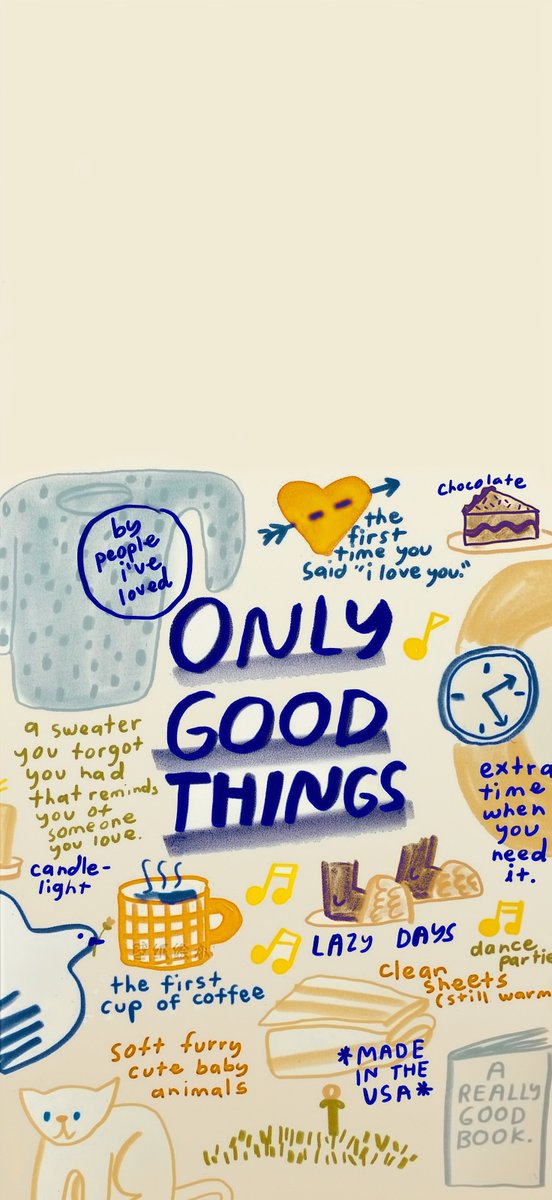 chocolate
by
people
i've
loved
the
first
time you
said "i love you."
ONLY
GOOD
THINGS
a sweater
you forgot
you had
that reminds
you of
someone
you love.
extra
time
when
you
need
it.
candle-
light
LAZY DAYS
dance
partie
the first
cup of coffee
clean
sheets
(still warm
soft furry
cute baby
animals
*MADE
IN THE
USA*
A
REALLY
GOOD
BOOK.